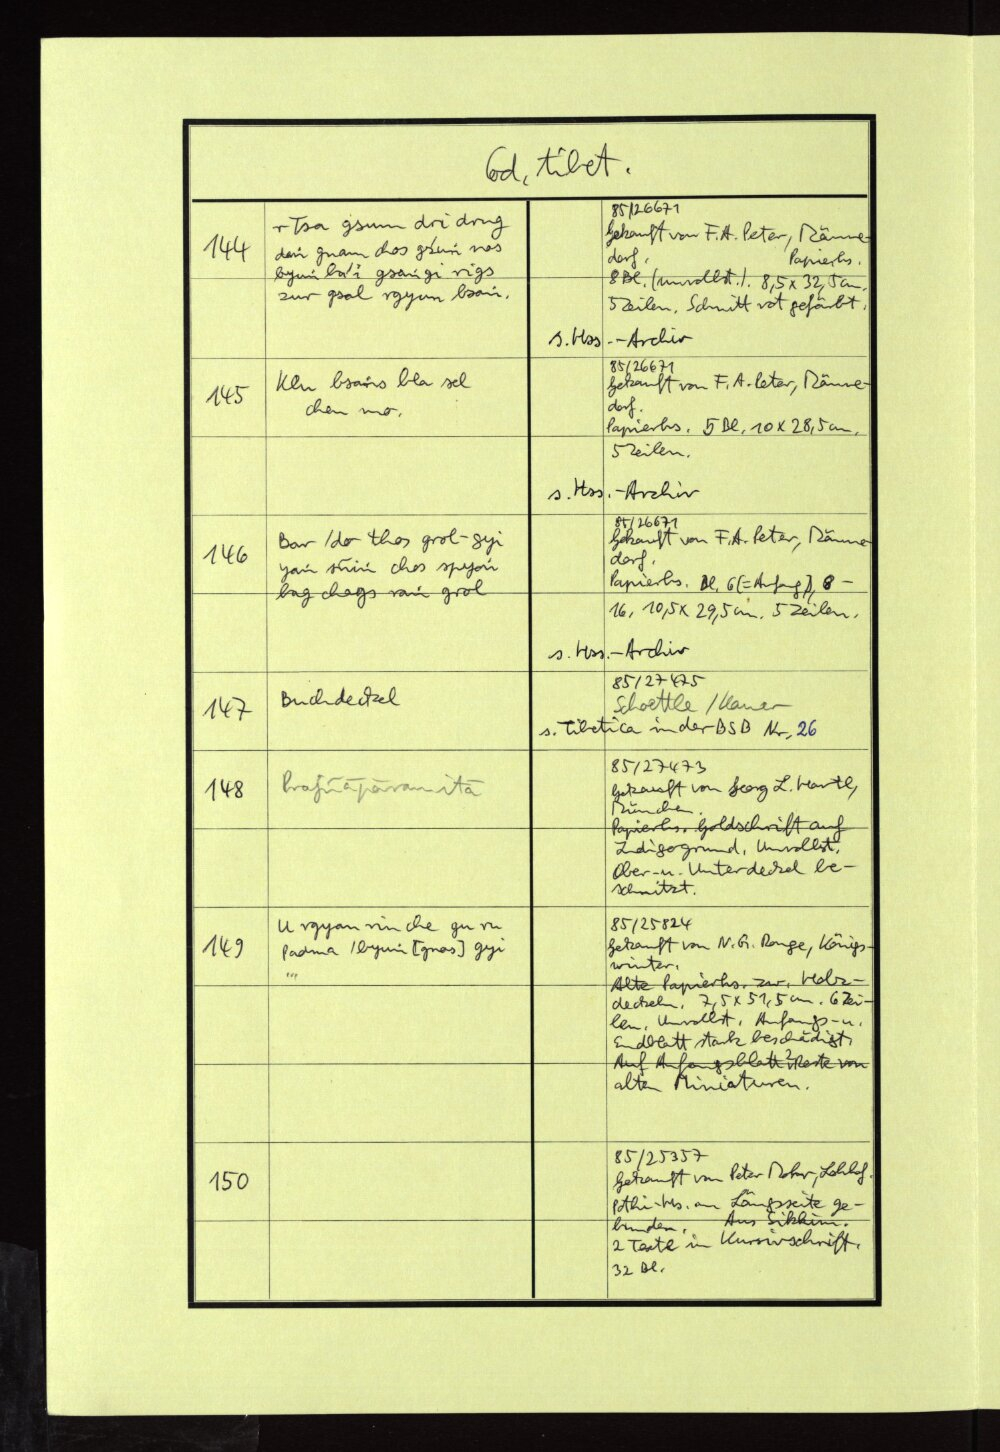 Cod. tibet.
144
rTsa gsum dri drug
dań gnam chos gźuń nas
byuń ba'i gsań gi rigs
zur gsol rgyun bzań.
85/26671
Gekauft von F. A. Peter, Männe-
dorf. Papierhs.
8 Bl. (unvollst.). 8,5 x 32,5 cm.
5 Zeilen. Schnitt rot gefärbt.
s. Hss.-Archiv
145
Klu bsańs bla sel
chen mo.
85/26671
Gekauft von F. A. Peter, Männe-
dorf.
Papierhs. 5 Bl. 10 x 28,5 cm.
5 Zeilen.
s. Hss.-Archiv
146
Bar /do thos grol-gyi
yań sñiń chos spyod
bag chags rań grol
85/26671
Gekauft von F. A. Peter, Männe-
dorf.
Papierhs. Bl. 6 (= Anfang), 8 –
16. 10,5 x 29,5 cm. 5 Zeilen.
s. Hss.-Archiv
147
Buchdeckel
85/27475
Schoettle /
s. Tibetica in der BSB Nr. 26
148
Prajñāpāramitā
85/27473
Gekauft von Georg L. Hartl,
München.
Papierhs. Goldschrift auf
Indigogrund. Unvollst.
Ober- u. Unterdeckel be-
schnitzt.
149
U rgyan rin che gu ru
Padma /byuń [gnas] gyi
...
85/25824
Gekauft von N. G. Ronge, Königs-
winter.
Alte Papierhs. zw. Holz-
deckeln. 7,5 x 51,5 cm. 6 Zei-
len. Unvollst. Anfangs- u.
Endblatt stark beschädigt.
Auf Anfangsblatt 2 Reste von
alten Miniaturen.
150
85/25357
Gekauft von Peter Mohr, Lohhof.
Pothi-Hs. an Längsseite ge-
bunden. Aus Sikkim.
2 Texte in Kursivschrift.
32 Bl.